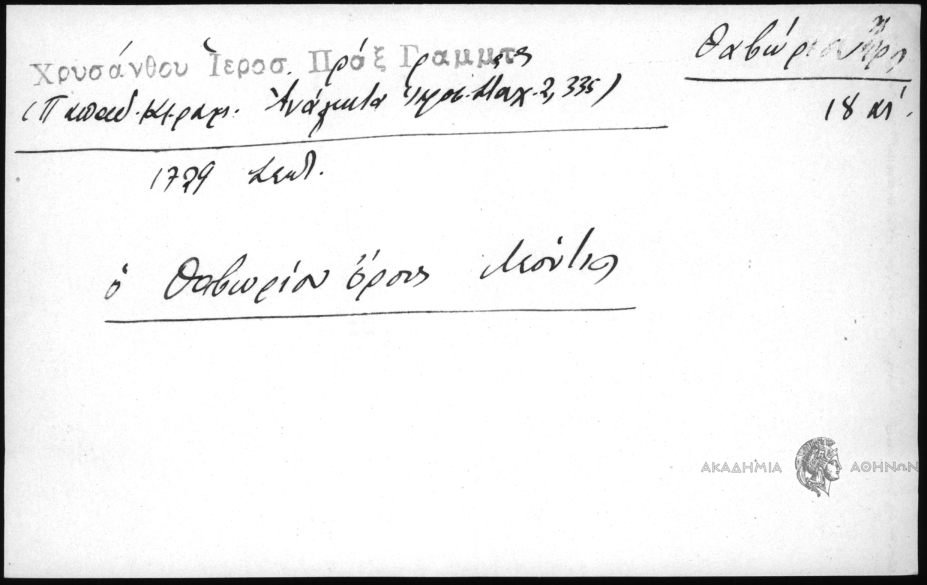 Θαβώριον ὄρος
18 αἰ.
Χρυσάνθου Ἱεροσ. Πράξ Γραμμτ
(Παπαδ. Κεραμ. Ἀνάλεκτα Ἱερος. Σταχ. 2, 335)
1729 Σεπτ.
ὁ Θαβωρίου ὄρους Λεόντιος
ΑΚΑΔΗΜΙΑ ΑΘΗΝΩΝ